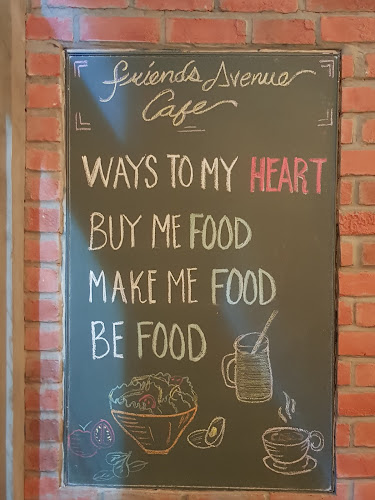 Friends Avenue
Cafe
WAYS TO MY HEART
BUY ME FOOD
MAKE ME FOOD
BE FOOD